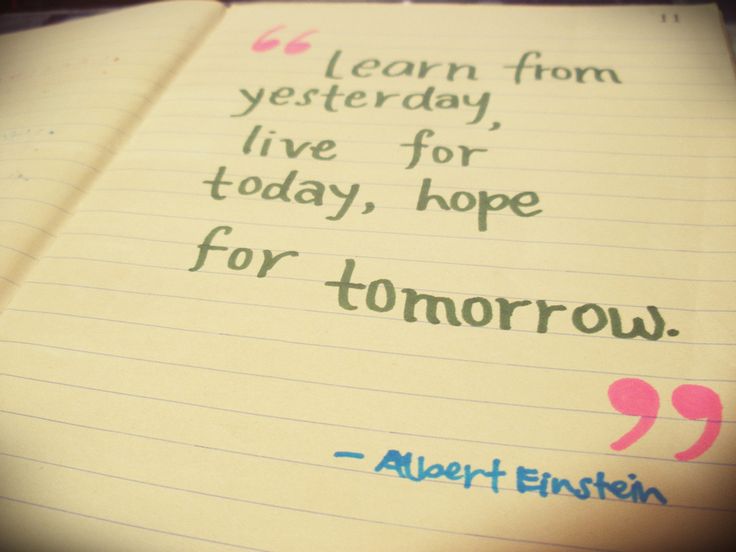 11
“ Learn from
yesterday,
live for
today, hope
for tomorrow.
”
- Albert Einstein